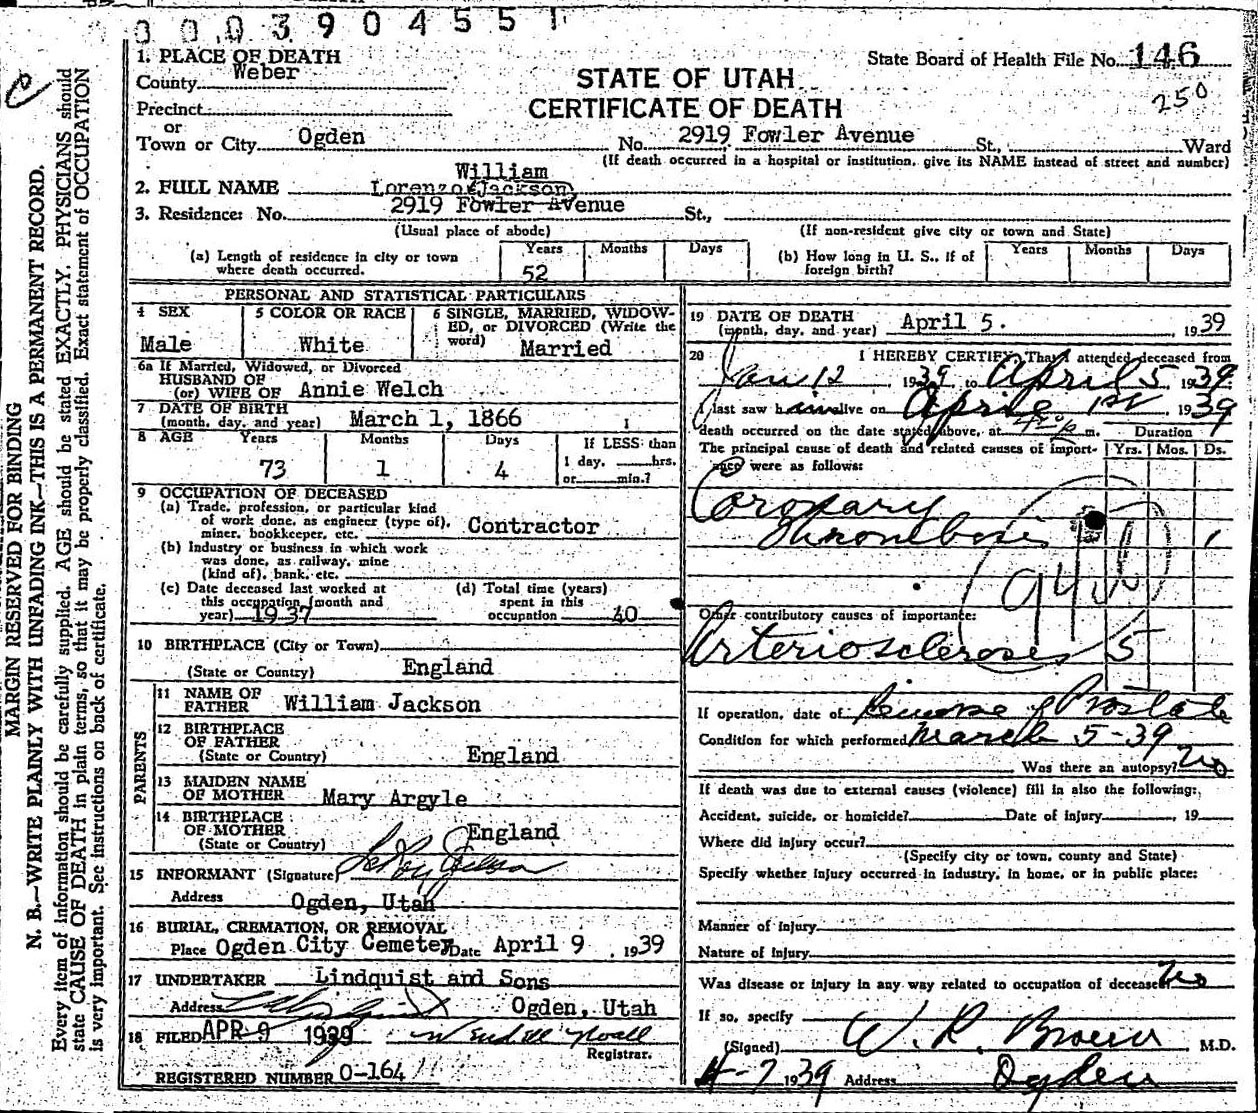 0003904551
1. PLACE OF DEATH
County Weber
State Board of Health File No. 146
250
STATE OF UTAH
CERTIFICATE OF DEATH
Precinct
or
Town or City Ogden No. 2919 Fowler Avenue St., Ward
(If death occurred in a hospital or institution, give its NAME instead of street and number)
William
2. FULL NAME Lorenzo (Jackson)
3. Residence: No. 2919 Fowler Avenue St.,
(Usual place of abode) (If non-resident give city or town and State)
(a) Length of residence in city or town where death occurred. Years 52 Months Days
(b) How long in U. S., if of foreign birth? Years Months Days
PERSONAL AND STATISTICAL PARTICULARS
4 SEX Male
5 COLOR OR RACE White
6 SINGLE, MARRIED, WIDOW-
ED, or DIVORCED (Write the
word) Married
6a If Married, Widowed, or Divorced
HUSBAND OF
(or) WIFE OF Annie Welch
7 DATE OF BIRTH
(month, day, and year) March 1, 1866
8 AGE Years 73 Months 1 Days 4
If LESS than
1 day, hrs.
or min.?
9 OCCUPATION OF DECEASED
(a) Trade, profession, or particular kind
of work done, as engineer (type of),
miner, bookkeeper, etc. Contractor
(b) Industry or business in which work
was done, as railway, mine
(kind of), bank, etc.
(c) Date deceased last worked at
this occupation (month and
year) 1937
(d) Total time (years)
spent in this
occupation 40
10 BIRTHPLACE (City or Town)
(State or Country) England
PARENTS
11 NAME OF
FATHER William Jackson
12 BIRTHPLACE
OF FATHER
(State or Country) England
13 MAIDEN NAME
OF MOTHER Mary Argyle
14 BIRTHPLACE
OF MOTHER
(State or Country) England
15 INFORMANT (Signature)
Address Ogden, Utah
16 BURIAL, CREMATION, OR REMOVAL
Place Ogden City Cemetey Date April 9, 1939
17 UNDERTAKER Lindquist and Sons
Address Ogden, Utah
18 FILED APR 9 1939
Registrar.
REGISTERED NUMBER 0-164
19 DATE OF DEATH
(month, day, and year) April 5. 1939
20 I HEREBY CERTIFY, That I attended deceased from
Jan 12, 1939 to April 5 1939
I last saw him alive on April 1st, 1939
death occurred on the date stated above, at m. Duration
The principal cause of death and related causes of import-
ance were as follows: Yrs. Mos. Ds.
Coronary
Thrombosis 1
94
Other contributory causes of importance:
Arteriosclerosis 5
If operation, date of Prostate
Condition for which performed March 5-39
Was there an autopsy? No
If death was due to external causes (violence) fill in also the following:
Accident, suicide, or homicide? Date of injury , 19
Where did injury occur?
(Specify city or town, county and State)
Specify whether injury occurred in industry, in home, or in public place:
Manner of injury
Nature of injury
Was disease or injury in any way related to occupation of deceased? No
If so, specify
(Signed) W. R. Brown M.D.
4-7 1939 Address Ogden
MARGIN RESERVED FOR BINDING
N. B.—WRITE PLAINLY WITH UNFADING INK—THIS IS A PERMANENT RECORD.
Every item of information should be carefully supplied. AGE should be stated EXACTLY. PHYSICIANS should
state CAUSE OF DEATH in plain terms, so that it may be properly classified. Exact statement of OCCUPATION
is very important. See instructions on back of certificate.